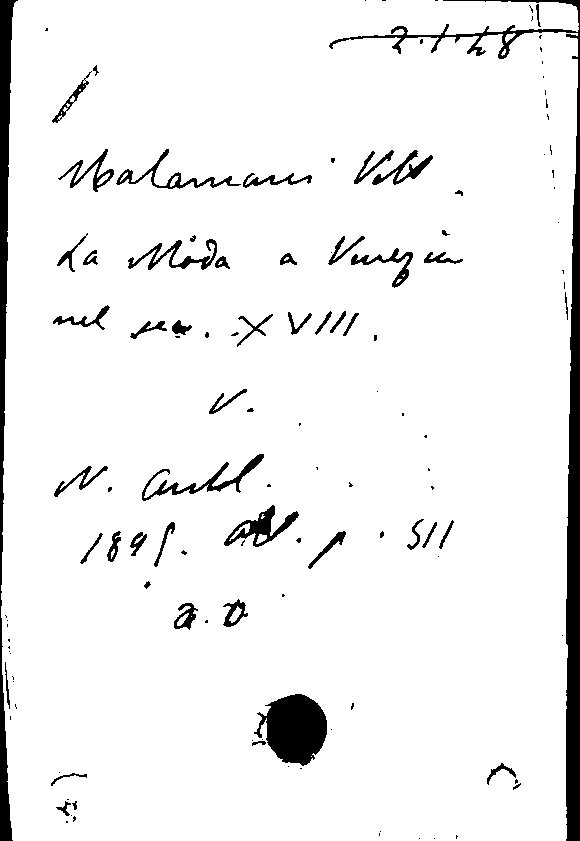 2.1.48
Malamani Vitt.
La Moda a Venezia
nel sec. XVIII.
V.
N. Antol.
1895. p. 511
a. D